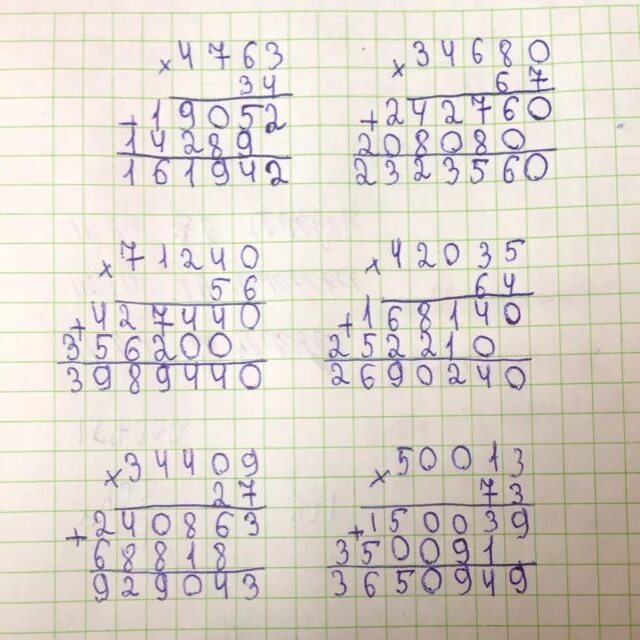 × 4763
34
+ 19052
14289
161942
× 34680
67
+ 242760
208080
2323560
× 71240
56
+ 427440
356200
3989440
× 42035
64
+ 168140
252210
2690240
× 34409
27
+ 240863
68818
929043
× 50013
73
+ 150039
350091
3650949